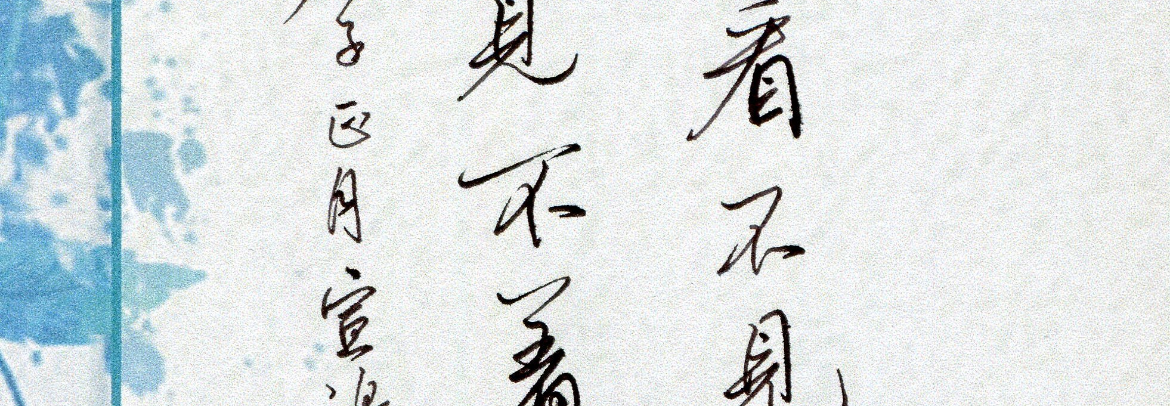 看不見
見不着
子正月宣